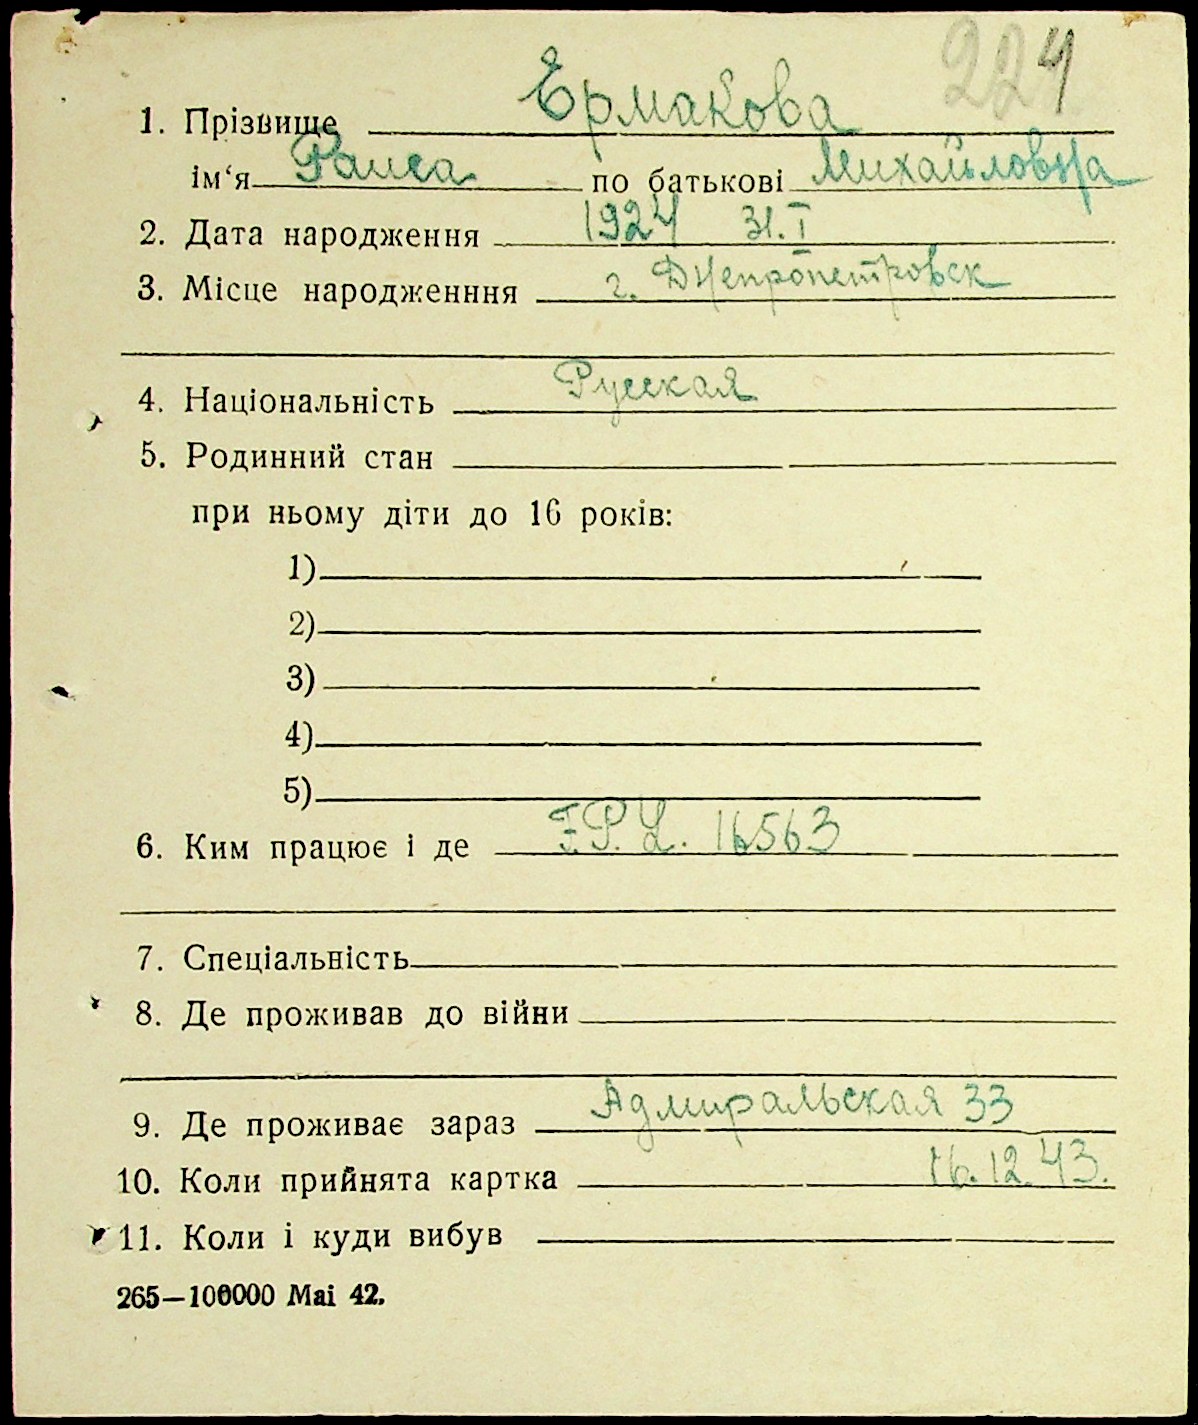 224
1. Прізвище Ермакова
ім‘я Раиса по батькові Михайловна
2. Дата народження 1924 31.I
3. Місце народженння г. Днепропетровск
4. Національність Русская
5. Родинний стан
при ньому діти до 16 років:
1)
2)
3)
4)
5)
6. Ким працює і де F.P.L. 16563
7. Спеціальність
8. Де проживав до війни
9. Де проживає зараз Адмиральская 33
10. Коли прийнята картка 16.12.43.
11. Коли і куди вибув
265—100000 Mai 42.